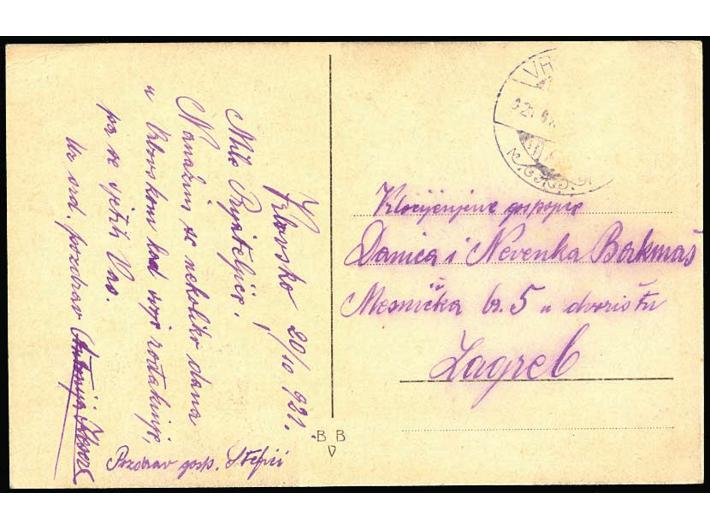 Vrbovsko 20/10 921.
Mile Prijateljice!
Nanazim se nekoliko dana
u Vrbovskom kod moje rođakinje,
pa se sjetih Vas.
Uz srd. pozdrav Antonija
Pozdrav gosp. Štefici
VR
Velecijenjene gospogjice
Danica i Nevenka Borkmaš
Mesnička br. 5 u dvorištu
Zagreb
B B
V